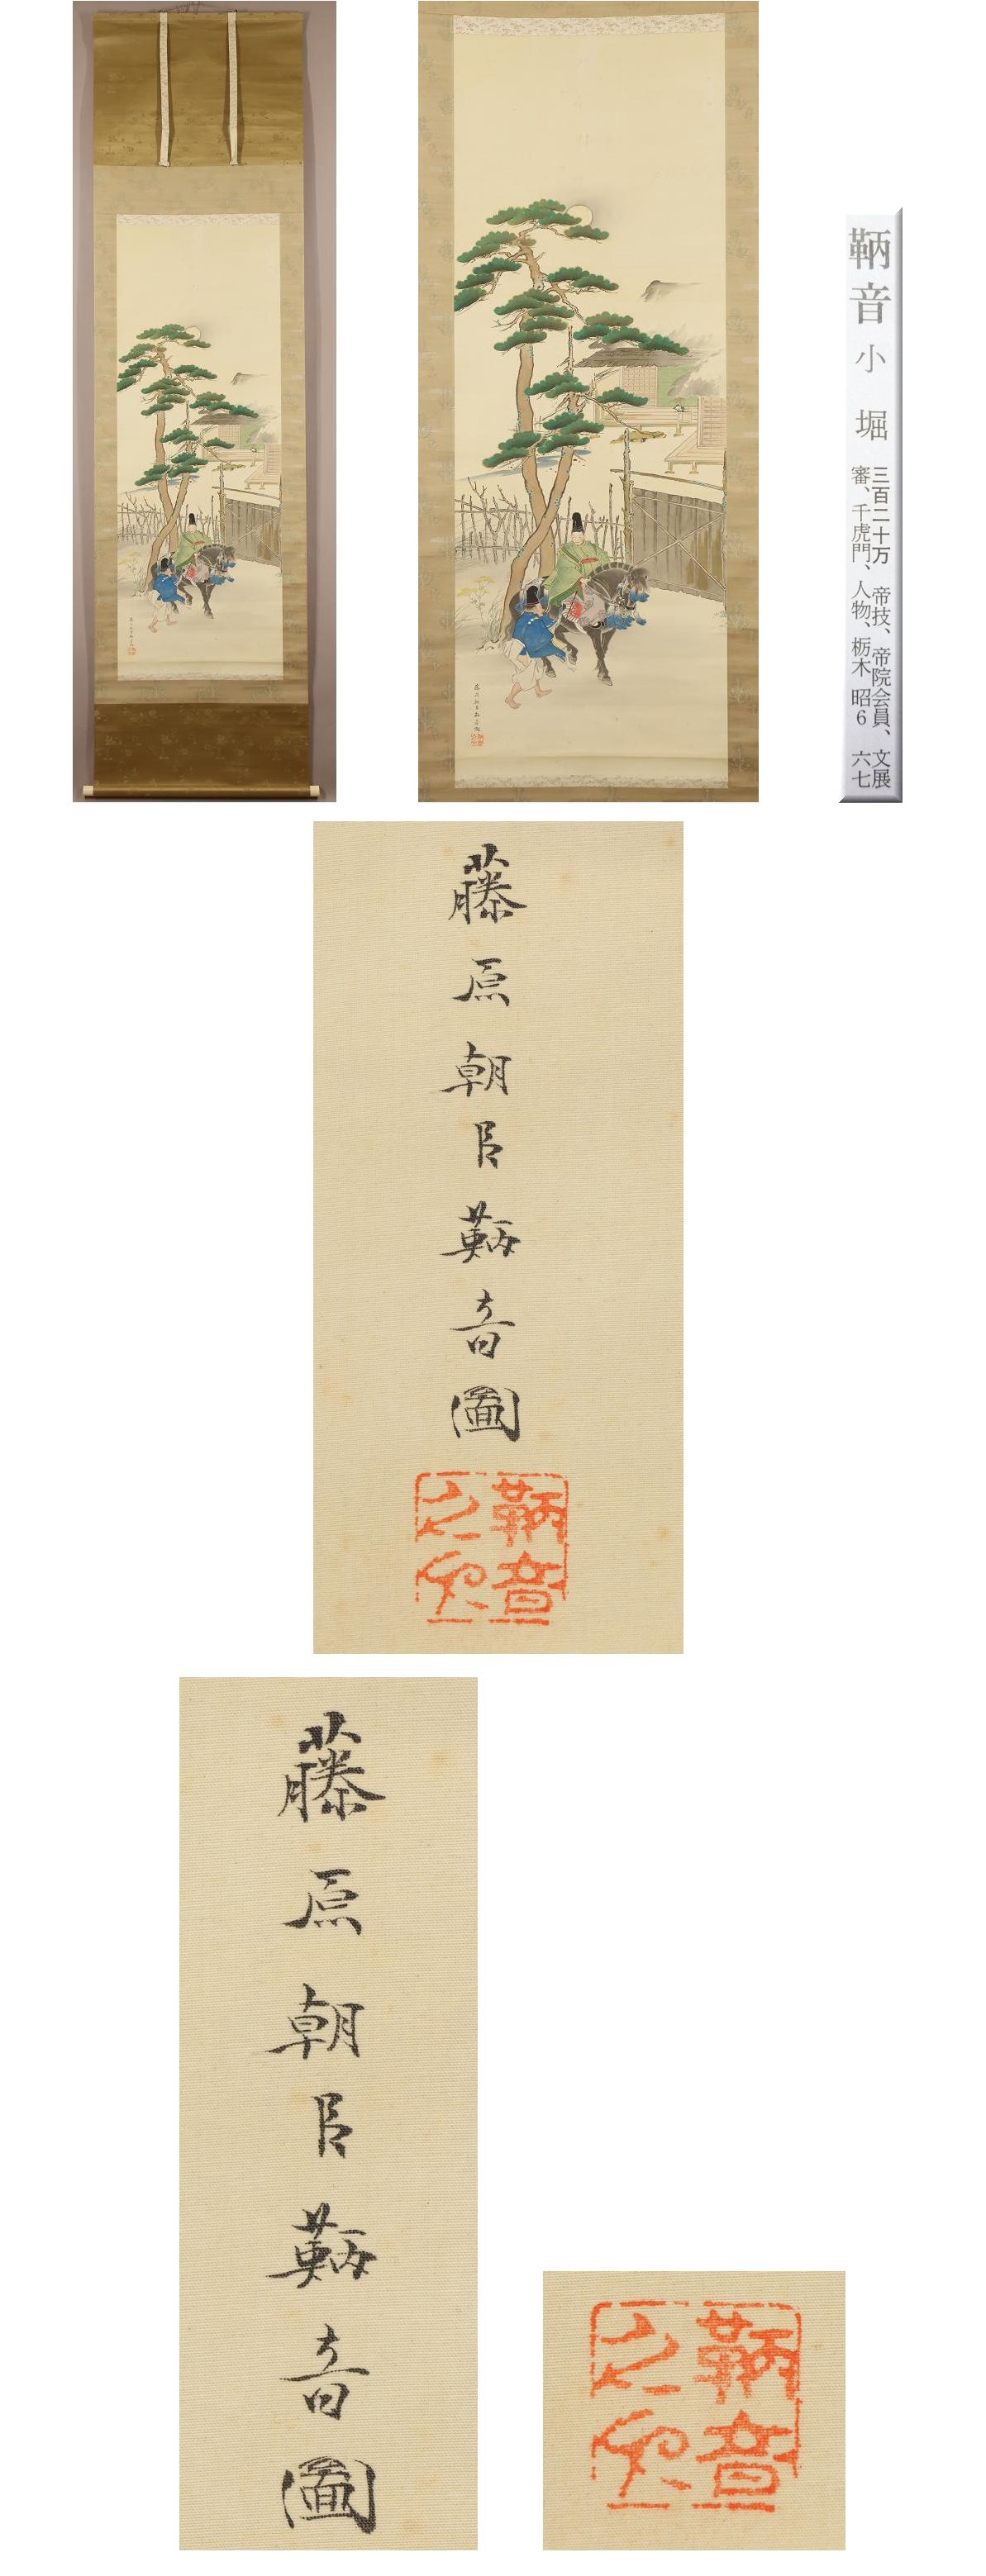 鞆音 小堀
三百二十万 帝技、帝院会員、文展
審、千虎門、人物、栃木 昭6 六七
藤原朝臣鞆音圖
鞆音
之印
藤原朝臣鞆音圖
鞆音
之印